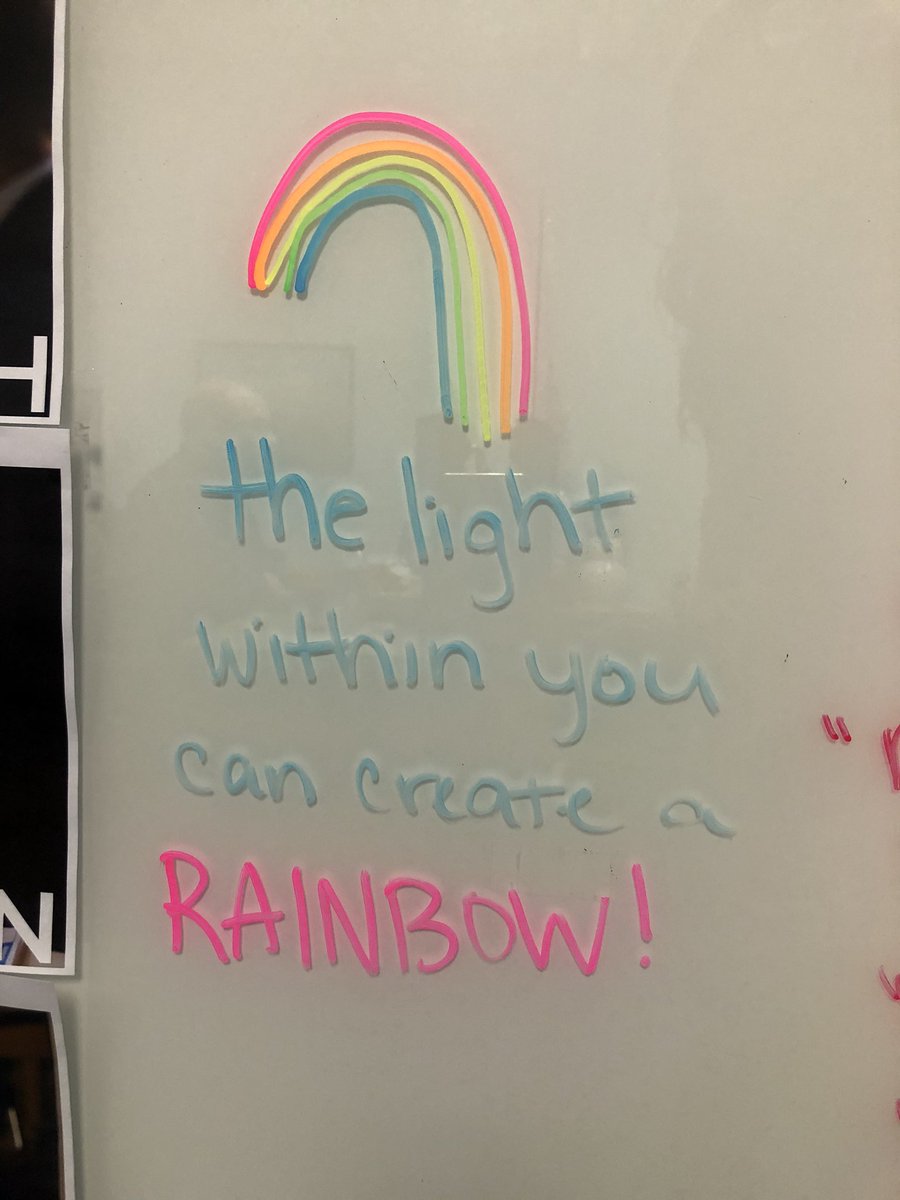 the light
within you
can create a
RAINBOW!
T
N
"